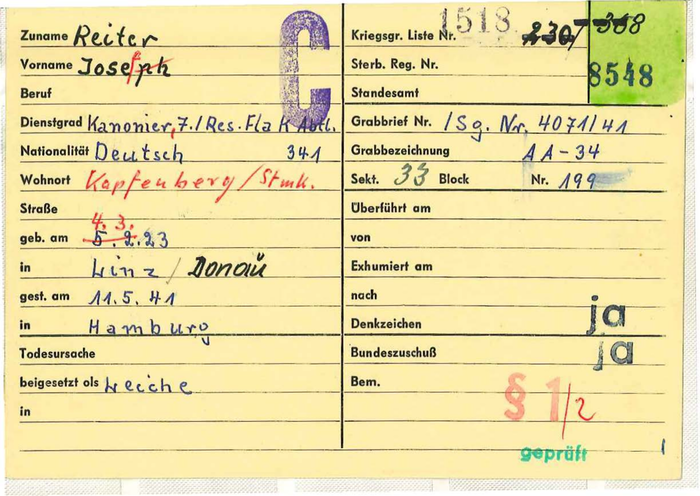 Zuname Reiter
Vorname Joseph
Beruf
Dienstgrad Kanonier, 7./Res. Flak Abtl.
Nationalität Deutsch 341
Wohnort Kapfenberg/Stmk.
Straße
4. 3.
geb. am 5. 2. 23
in Linz / Donau
gest. am 11. 5. 41
in Hamburg
Todesursache
beigesetzt als Leiche
in
C
Kriegsgr. Liste Nr. 1518 230/ 388
Sterb. Reg. Nr. 8548
Standesamt
Grabbrief Nr. /Sg. Nr. 4071/41
Grabbezeichnung AA-34
Sekt. 33 Block Nr. 199
Überführt am
von
Exhumiert am
nach
Denkzeichen ja
Bundeszuschuß ja
Bem.
§ 1/2
geprüft